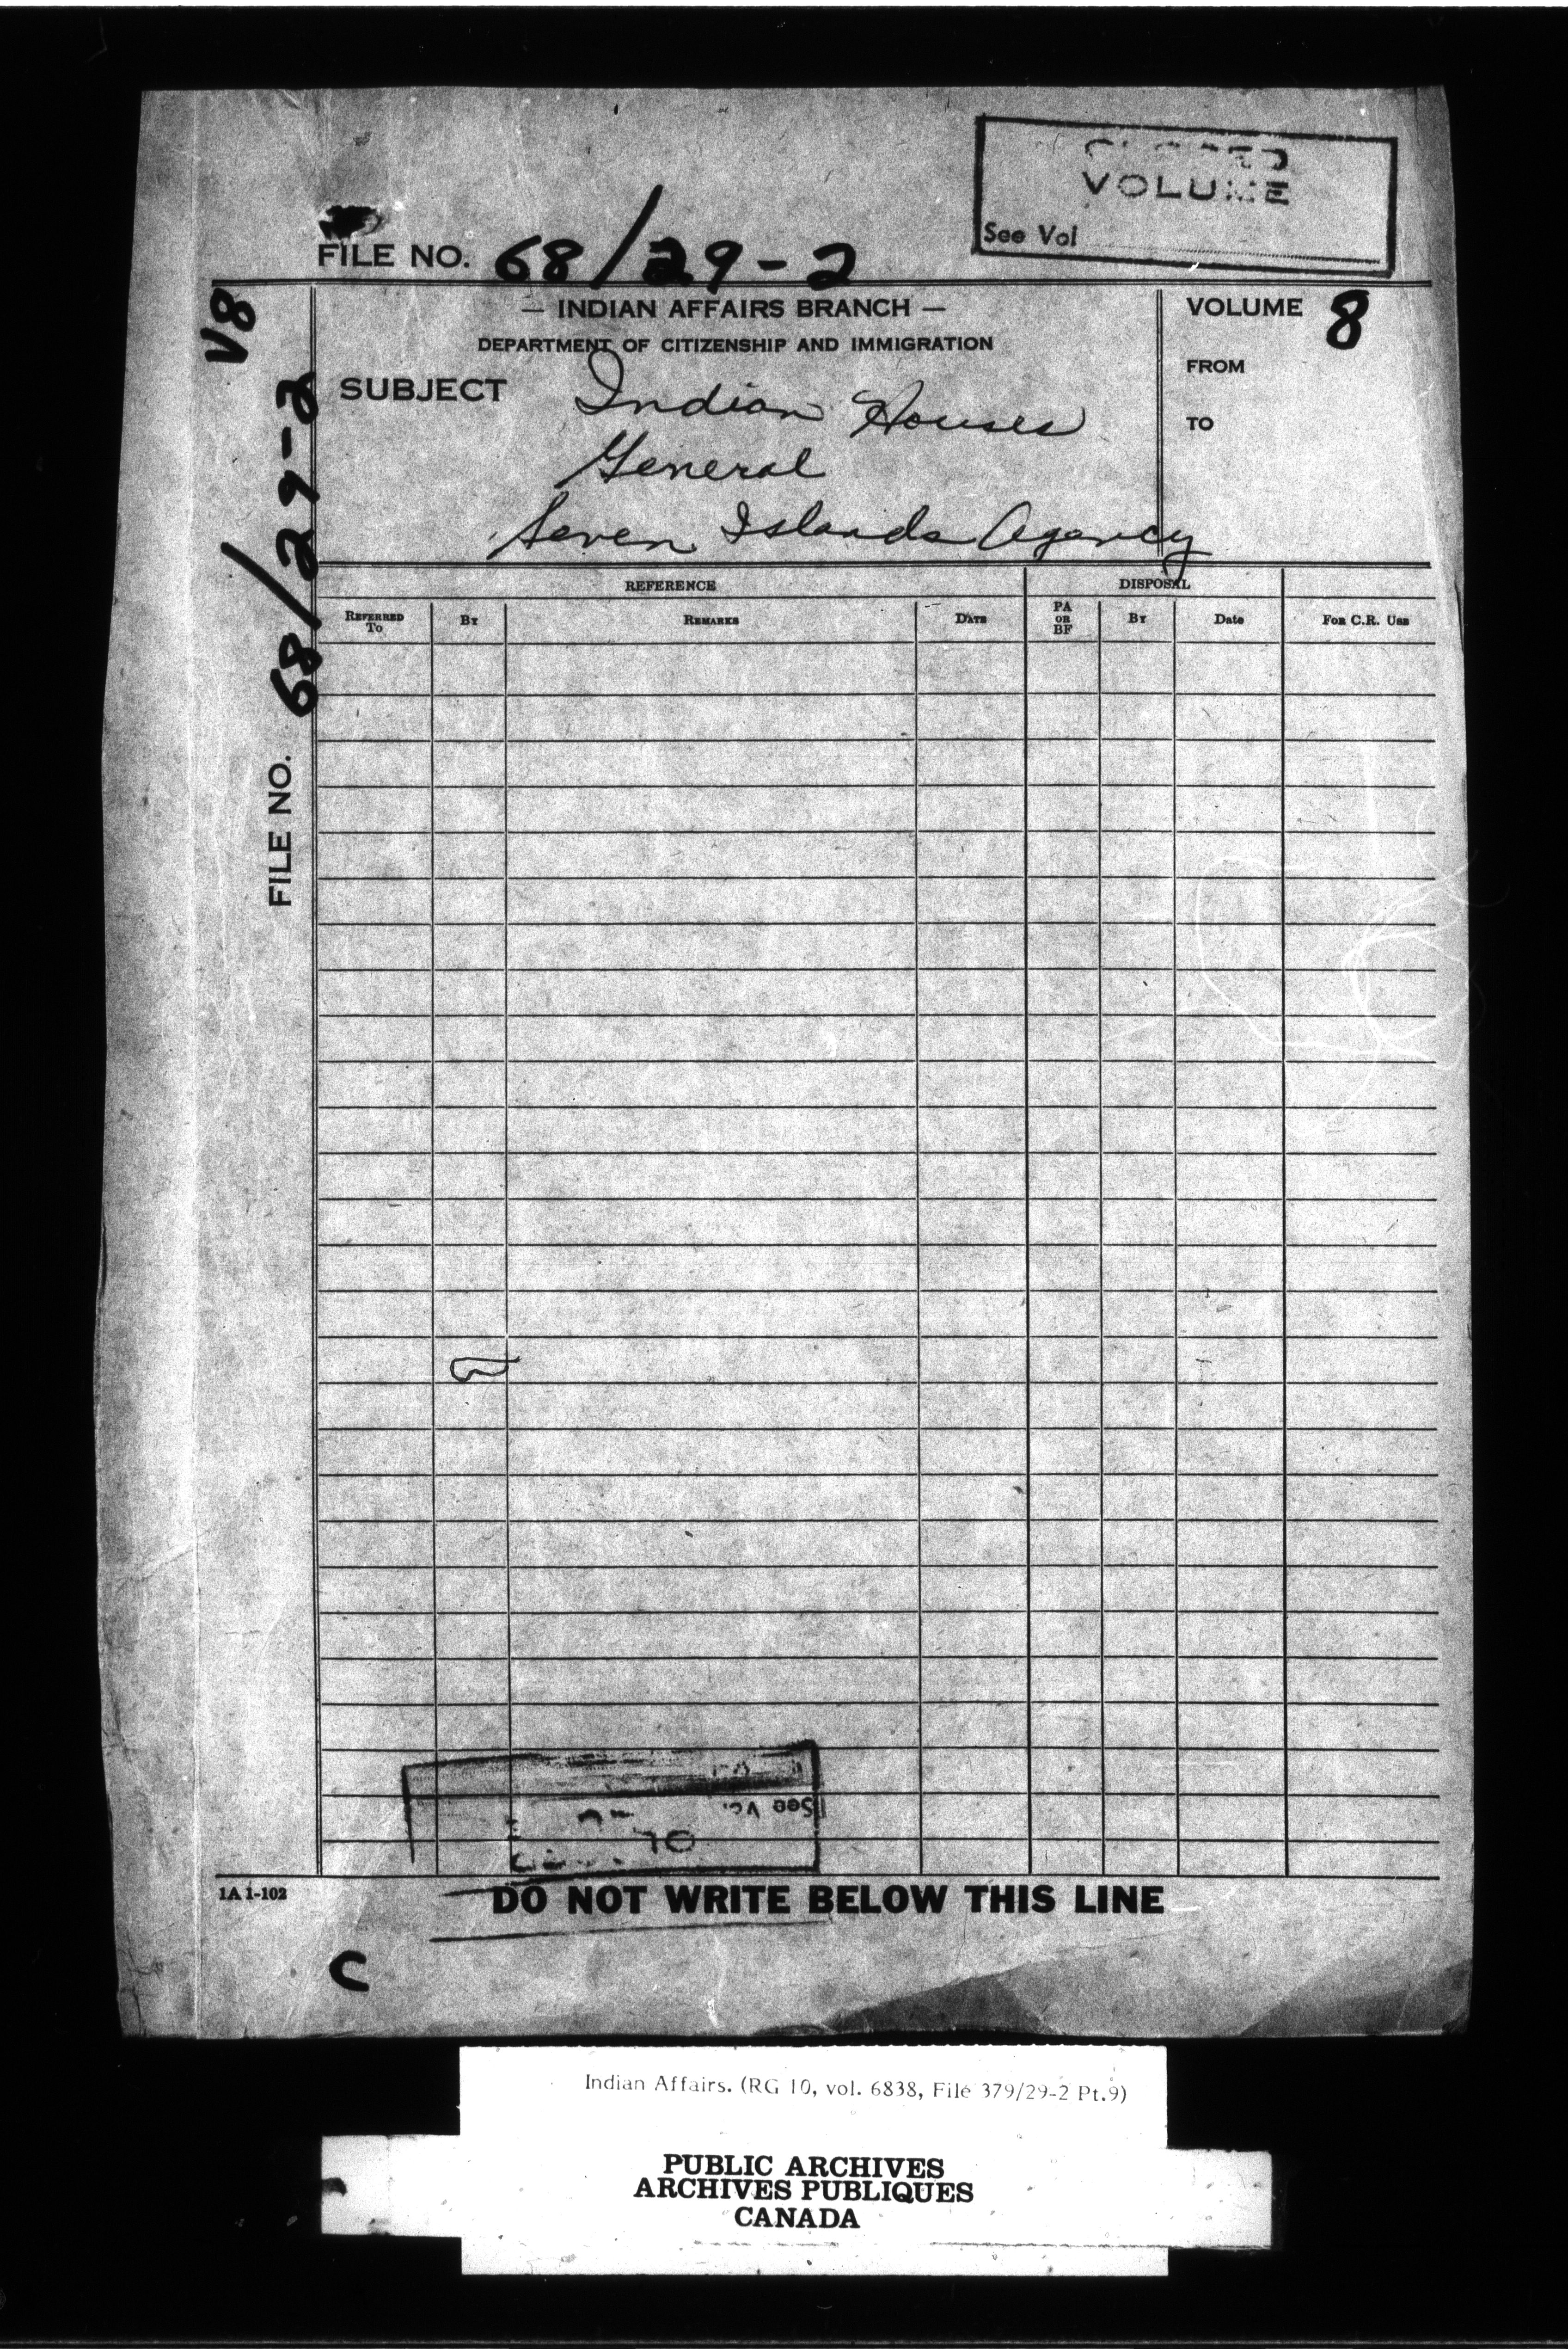 CLOSED
VOLUME
See Vol
FILE NO. 68/29-2
V8
— INDIAN AFFAIRS BRANCH —
DEPARTMENT OF CITIZENSHIP AND IMMIGRATION
VOLUME 8
FROM
TO
SUBJECT Indian Houses
General
Seven Islands Agency
FILE NO. 68/29-2
REFERENCE DISPOSAL
REFERRED TO BY REMARKS DATE PA OR BF BY Date FOR C.R. USE
See Vol
1A 1-102
DO NOT WRITE BELOW THIS LINE
C
Indian Affairs. (RG 10, vol. 6838, File 379/29-2 Pt.9)
PUBLIC ARCHIVES
ARCHIVES PUBLIQUES
CANADA